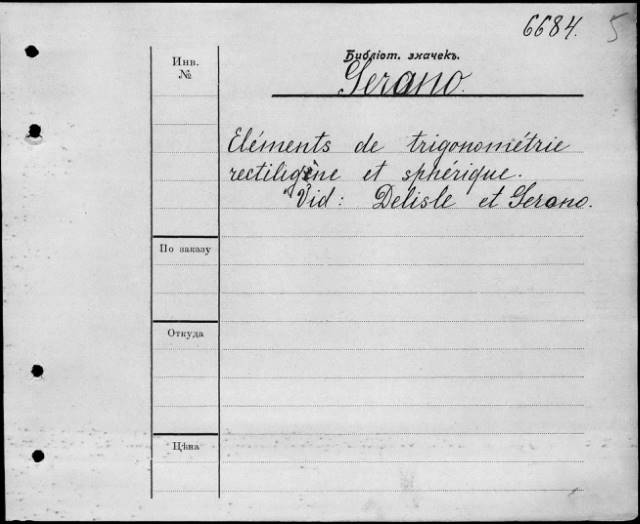 6684. 5
Инв.
№
Библіот. значекъ.
Gerano.
Eléments de trigonométrie
rectiligène et sphérique.
Vid: Delisle et Gerono.
По заказу
Откуда
Цѣна